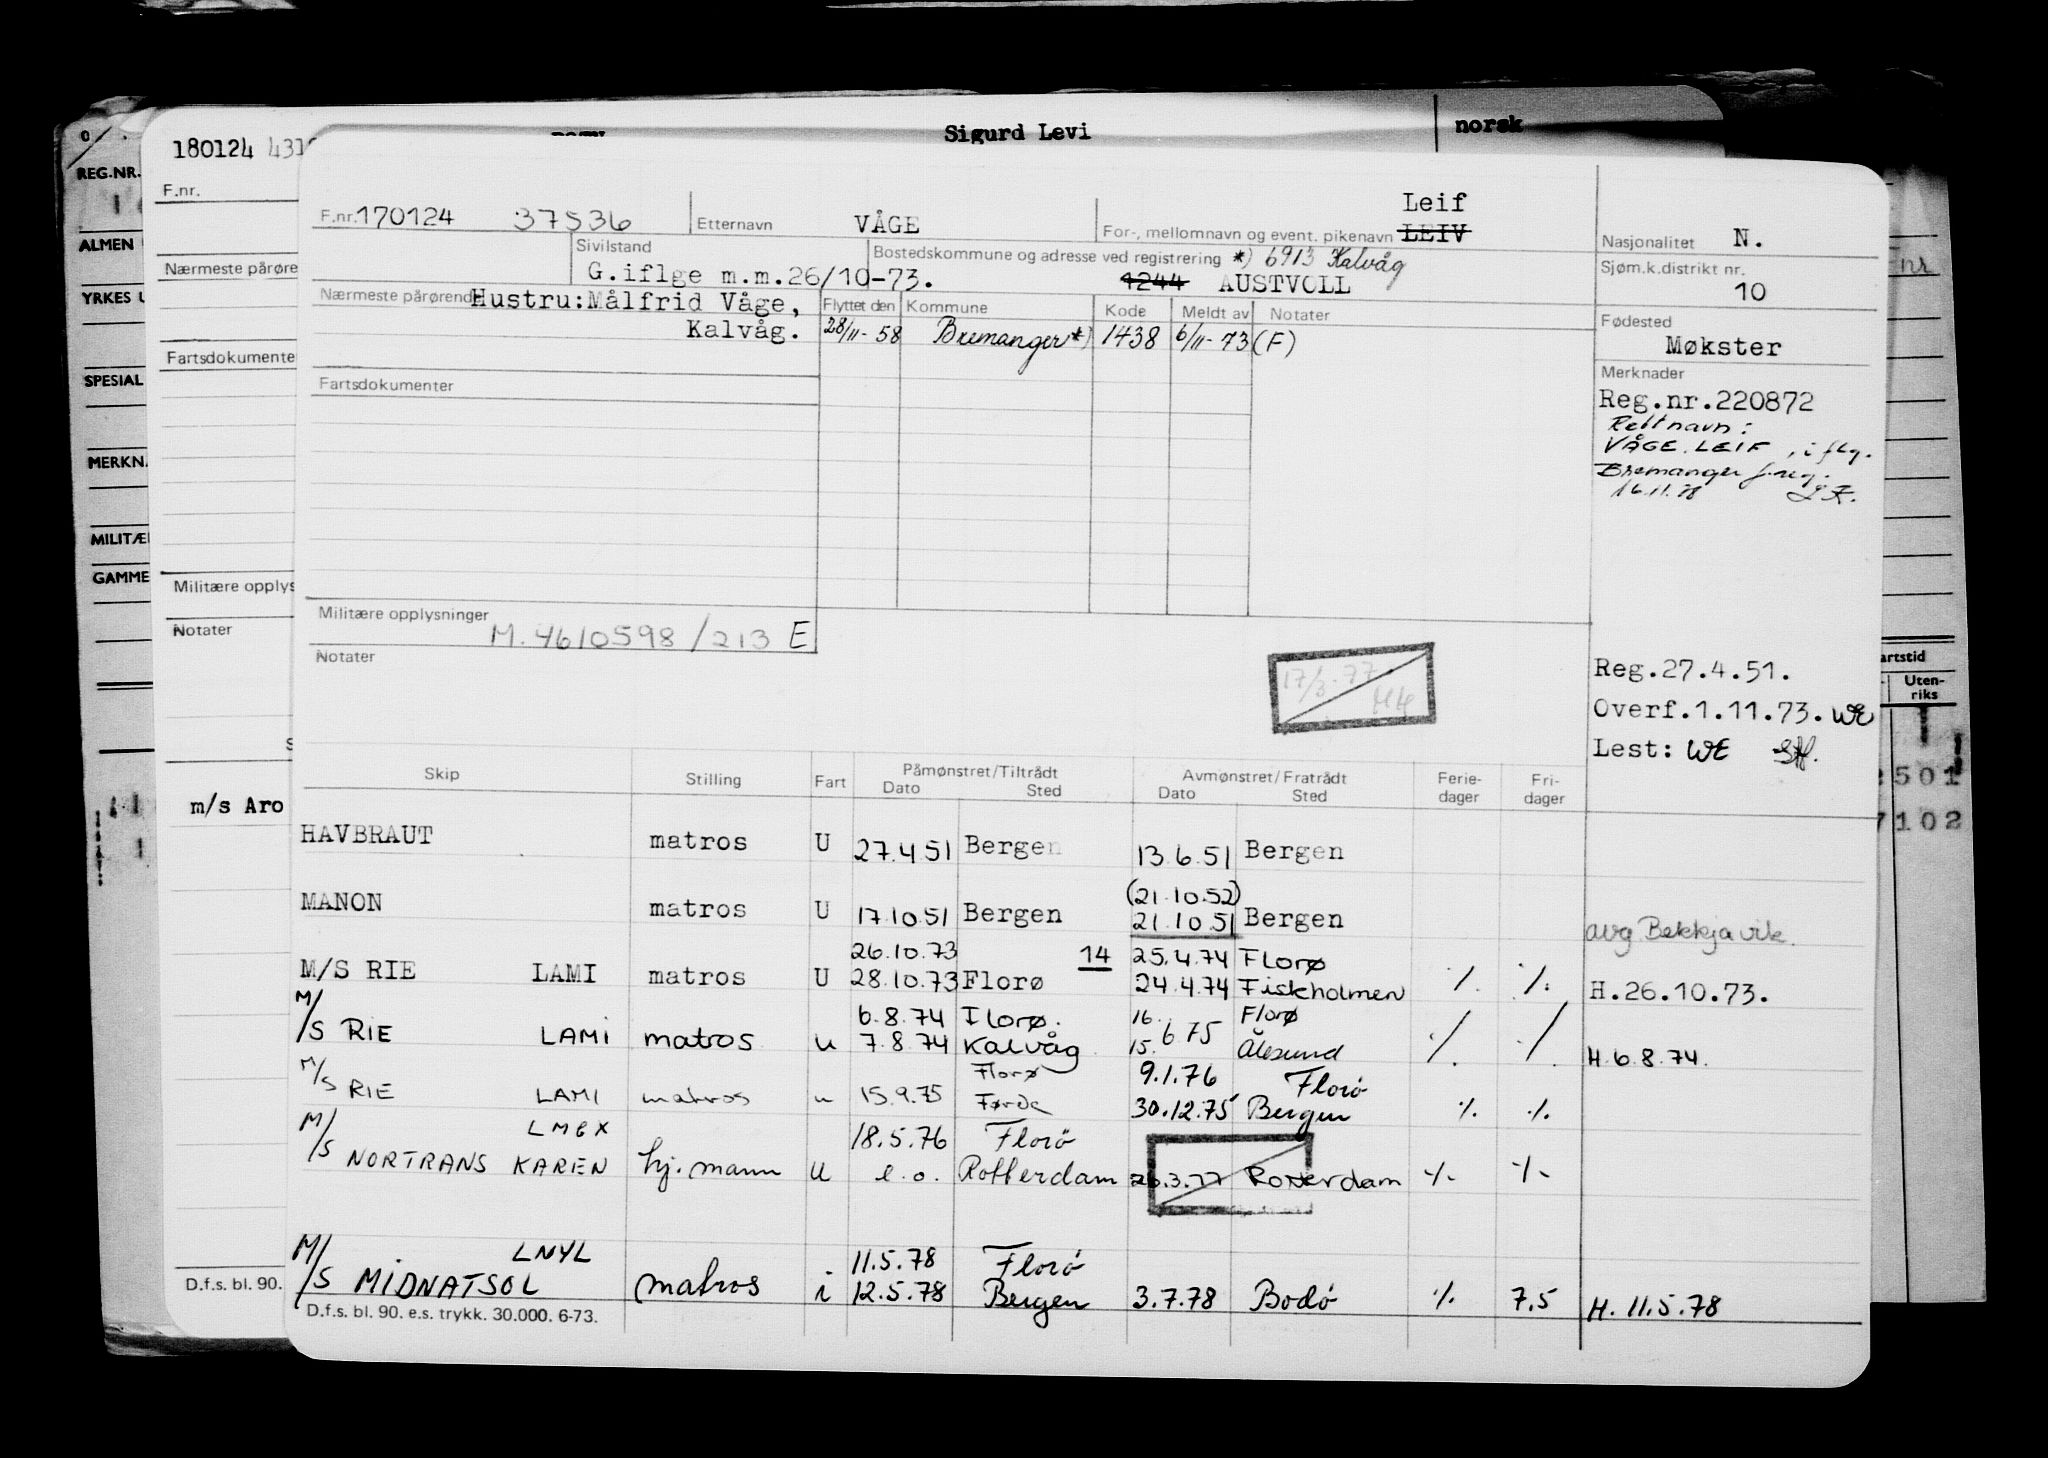 180124
Sigurd Levi
norsk
REG.NR.
F.nr.
ALMEN
Nærmeste pårøre
YRKES
Fartsdokumente
SPESIAL
MERKN
MILITÆ
GAMME
Militære opplys
Notater
m/s Aro
D.f.s. bl. 90.
F.nr. 170124 37536 Etternavn VÅGE
Leif
For-, mellomnavn og event. pikenavn LEIV
Nasjonalitet N.
Sivilstand
G.iflge m.m.26/10-73.
Bostedskommune og adresse ved registrering *) 6913 Kalvåg
1244 AUSTVOLL
Sjøm.k.distrikt nr.
10
Nærmeste pårørende Hustru:Målfrid Våge,
Kalvåg.
Flyttet den Kommune Kode Meldt av Notater
28/11-58 Bremanger*) 1438 6/11-73 (F)
Fødested
Møkster
Fartsdokumenter
Merknader
Reg.nr.220872
Rett navn:
VÅGE. LEIF, iflg.
Bremanger f.reg.
16.11.78
Militære opplysninger
M.4610598/213 E
Notater
17/3-77
Reg.27.4.51.
Overf.1.11.73. WE
Lest: WE
artstid
Uten-
riks
501
7102
Skip Stilling Fart Påmønstret/Tiltrådt Avmønstret/Fratrådt Ferie- Fri-
Dato Sted Dato Sted dager dager
HAVBRAUT matros U 27.4.51 Bergen 13.6.51 Bergen
(21.10.52)
MANON matros U 17.10.51 Bergen 21.10.51 Bergen avg Bekkjavik.
26.10.73 14 25.4.74 Florø
M/S RIE LAMI matros U 28.10.73 Florø 24.4.74 Fiskholmen ·/. ·/. H.26.10.73.
6.8.74 Florø. 16. Florø
M/S RIE LAMI matros u 7.8.74 Kalvåg 15. 6 75 Ålesund ·/. ·/. H.6.8.74.
Florø 9.1.76 Florö
M/S RIE LAMI matros u 15.9.75 Førde 30.12.75 Bergen ·/. ·/.
LMGX 18.5.76 Florö
M/S NORTRANS KAREN hj.mann u e.o. Rotterdam 26.3.77 Rotterdam ·/- ·/-
LNYL 11.5.78 Florö
M/S MIDNATSOL matros i 12.5.78 Bergen 3.7.78 Bodö ·/. 7,5 H. 11.5.78
D.f.s. bl. 90. e.s. trykk. 30.000. 6-73.